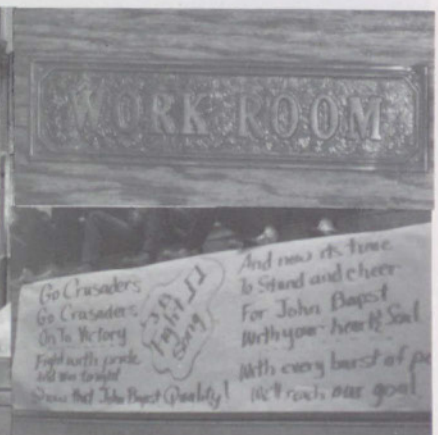 WORK ROOM
Go Crusaders
Go Crusaders
On To Victory
Fight with pride
and win tonight
Show that John Bapst Quality!
J.B.
Fight
Song
And now its time
To Stand and cheer
For John Bapst
With your heart & Soul
With every burst of
We'll reach our goal